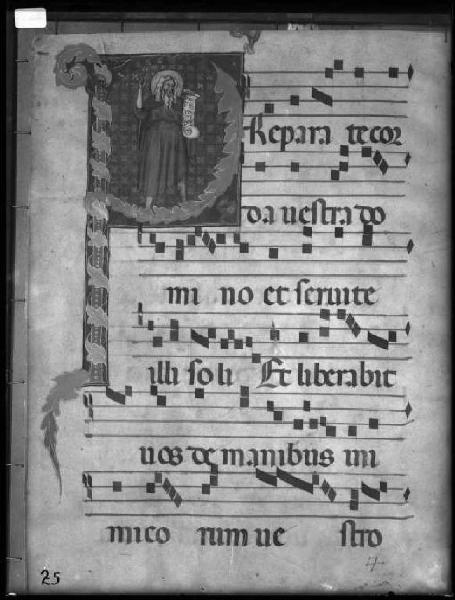 P Repara te cor
da uestra do
mi no et seruite
illi so li Et liberabit
uos de manibus ini
mico rum ue stro
25